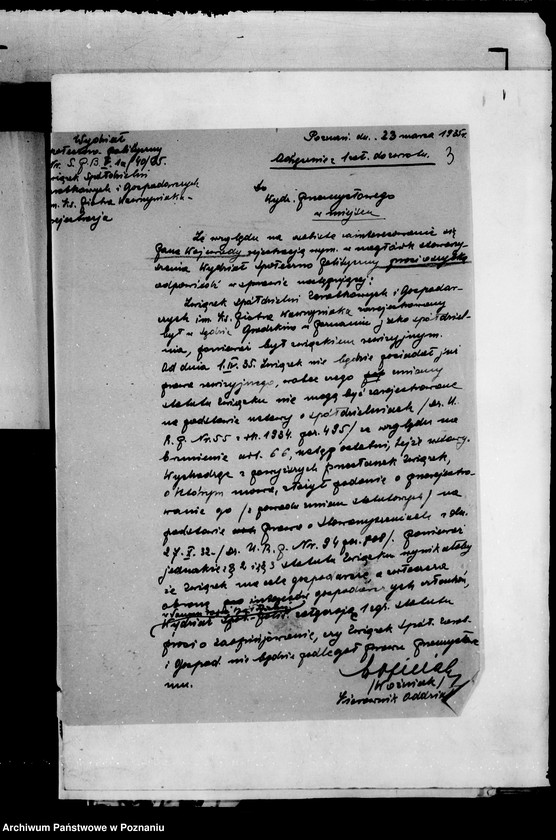 Wydział
Społeczno Polityczny
Nr. S.P.B. V 1a/40/35.
Związek Spółdzielni
Zarobkowych i Gospodarczych
im. Ks. Piotra Wawrzyniaka -
rejestracja
Poznań dn. 23 marca 1935r.
1 zał. do zwrotu.
3
Do
Wydz. Przemysłowego
w miejscu
Ze względu na osobiste zainteresowanie się
Pana Wojewody rejestracją wym. w nagłówku stowarzy-
szenia Wydział Społeczno Polityczny prosi o
odpowiedź w sprawie następującej:
Związek Spółdzielni Zarobkowych i Gospodar-
czych im. Ks. Piotra Wawrzyniaka zarejestrowany
był w Sądzie Grodzkim w Poznaniu jako spółdziel-
nia, ponieważ był związkiem rewizyjnym.
Od dnia 1.IV.35. Związek nie będzie posiadał już
prawa rewizyjnego, wobec czego zmiany
statutu Związku nie mogą być zarejestrowane
na podstawie ustawy o spółdzielniach /Dz. U.
R.P. Nr. 55 z rk. 1934. poz. 495/ ze względu na
brzmienie art. 66, ustęp ostatni, tejże ustawy.
Wychodząc z powyższych przesłanek Związek,
o którym mowa, złożył podanie o zarejestro-
wanie go /z powodu zmian statutowych/ na
podstawie prawa o stowarzyszeniach z dn.
27.X.32. /Dz. U.R.P. Nr. 94 poz. 808/. Ponieważ
jednakże z § 2 i § 3 statutu Związku wynikałoby
że Związek ma cele gospodarcze, a zwłaszcza
obronę interesów gospodarczych członków,
Wydział Społ.-Polit. załączając 1 egz. statutu
prosi o zaopiniowanie, czy Związek Spółdz. Zarob.
i Gospod. nie będzie podlegał prawu przemysłowe-
mu.
/Woźniak/
Kierownik Oddziału
Archiwum Państwowe w Poznaniu